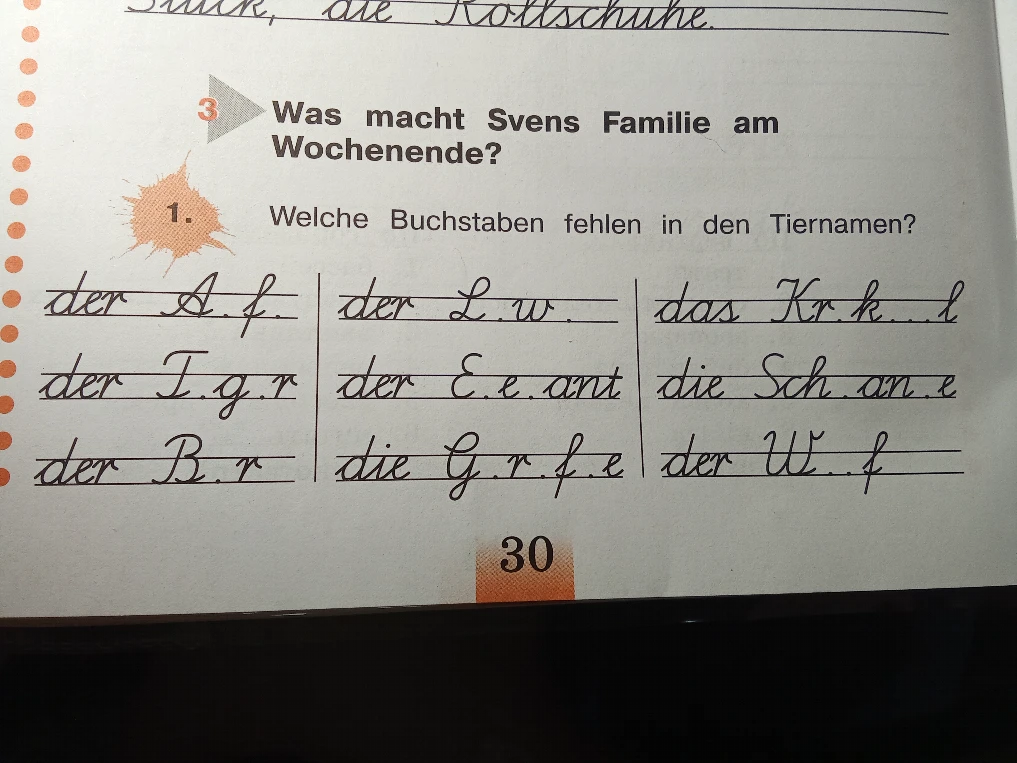 Stück, die Rollschuhe.
3 Was macht Svens Familie am
Wochenende?
1. Welche Buchstaben fehlen in den Tiernamen?
der A.f. der L.w. das Kr.k...l
der T.g.r der E.e.ant die Sch.an.e
der B.r die G.r.f.e der W..f
30